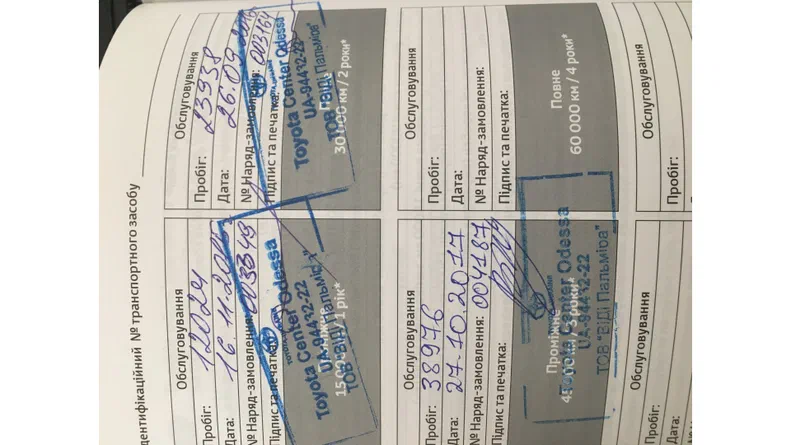 дентифікаційний № транспортного засобу
Обслуговування
Пробіг: 12024
Дата: 16.11.2015
№ Наряд-замовлення: 003349
Підпис та печатка:
Toyota Center Odessa
UA-94432-22
ТОВ "ВІДІ Пальміра"
15 000 км / 1 рік*
Обслуговування
Пробіг: 23938
Дата: 26.09.2016
№ Наряд-замовлення: 003164
Підпис та печатка:
Toyota Center Odessa
UA-94432-22
ТОВ "ВІДІ Пальміра"
30 000 км / 2 роки*
Обслуговування
Пробіг: 38976
Дата: 27.10.2017
№ Наряд-замовлення: 004187
Підпис та печатка:
Проміжне
45 000 км / 3 роки*
Toyota Center Odessa
UA-94432-22
ТОВ "ВІДІ Пальміра"
Обслуговування
Пробіг:
Дата:
№ Наряд-замовлення:
Підпис та печатка:
Повне
60 000 км / 4 роки*
Обслуговування
Пробіг:
Дата:
Обслуговування
Пробіг: